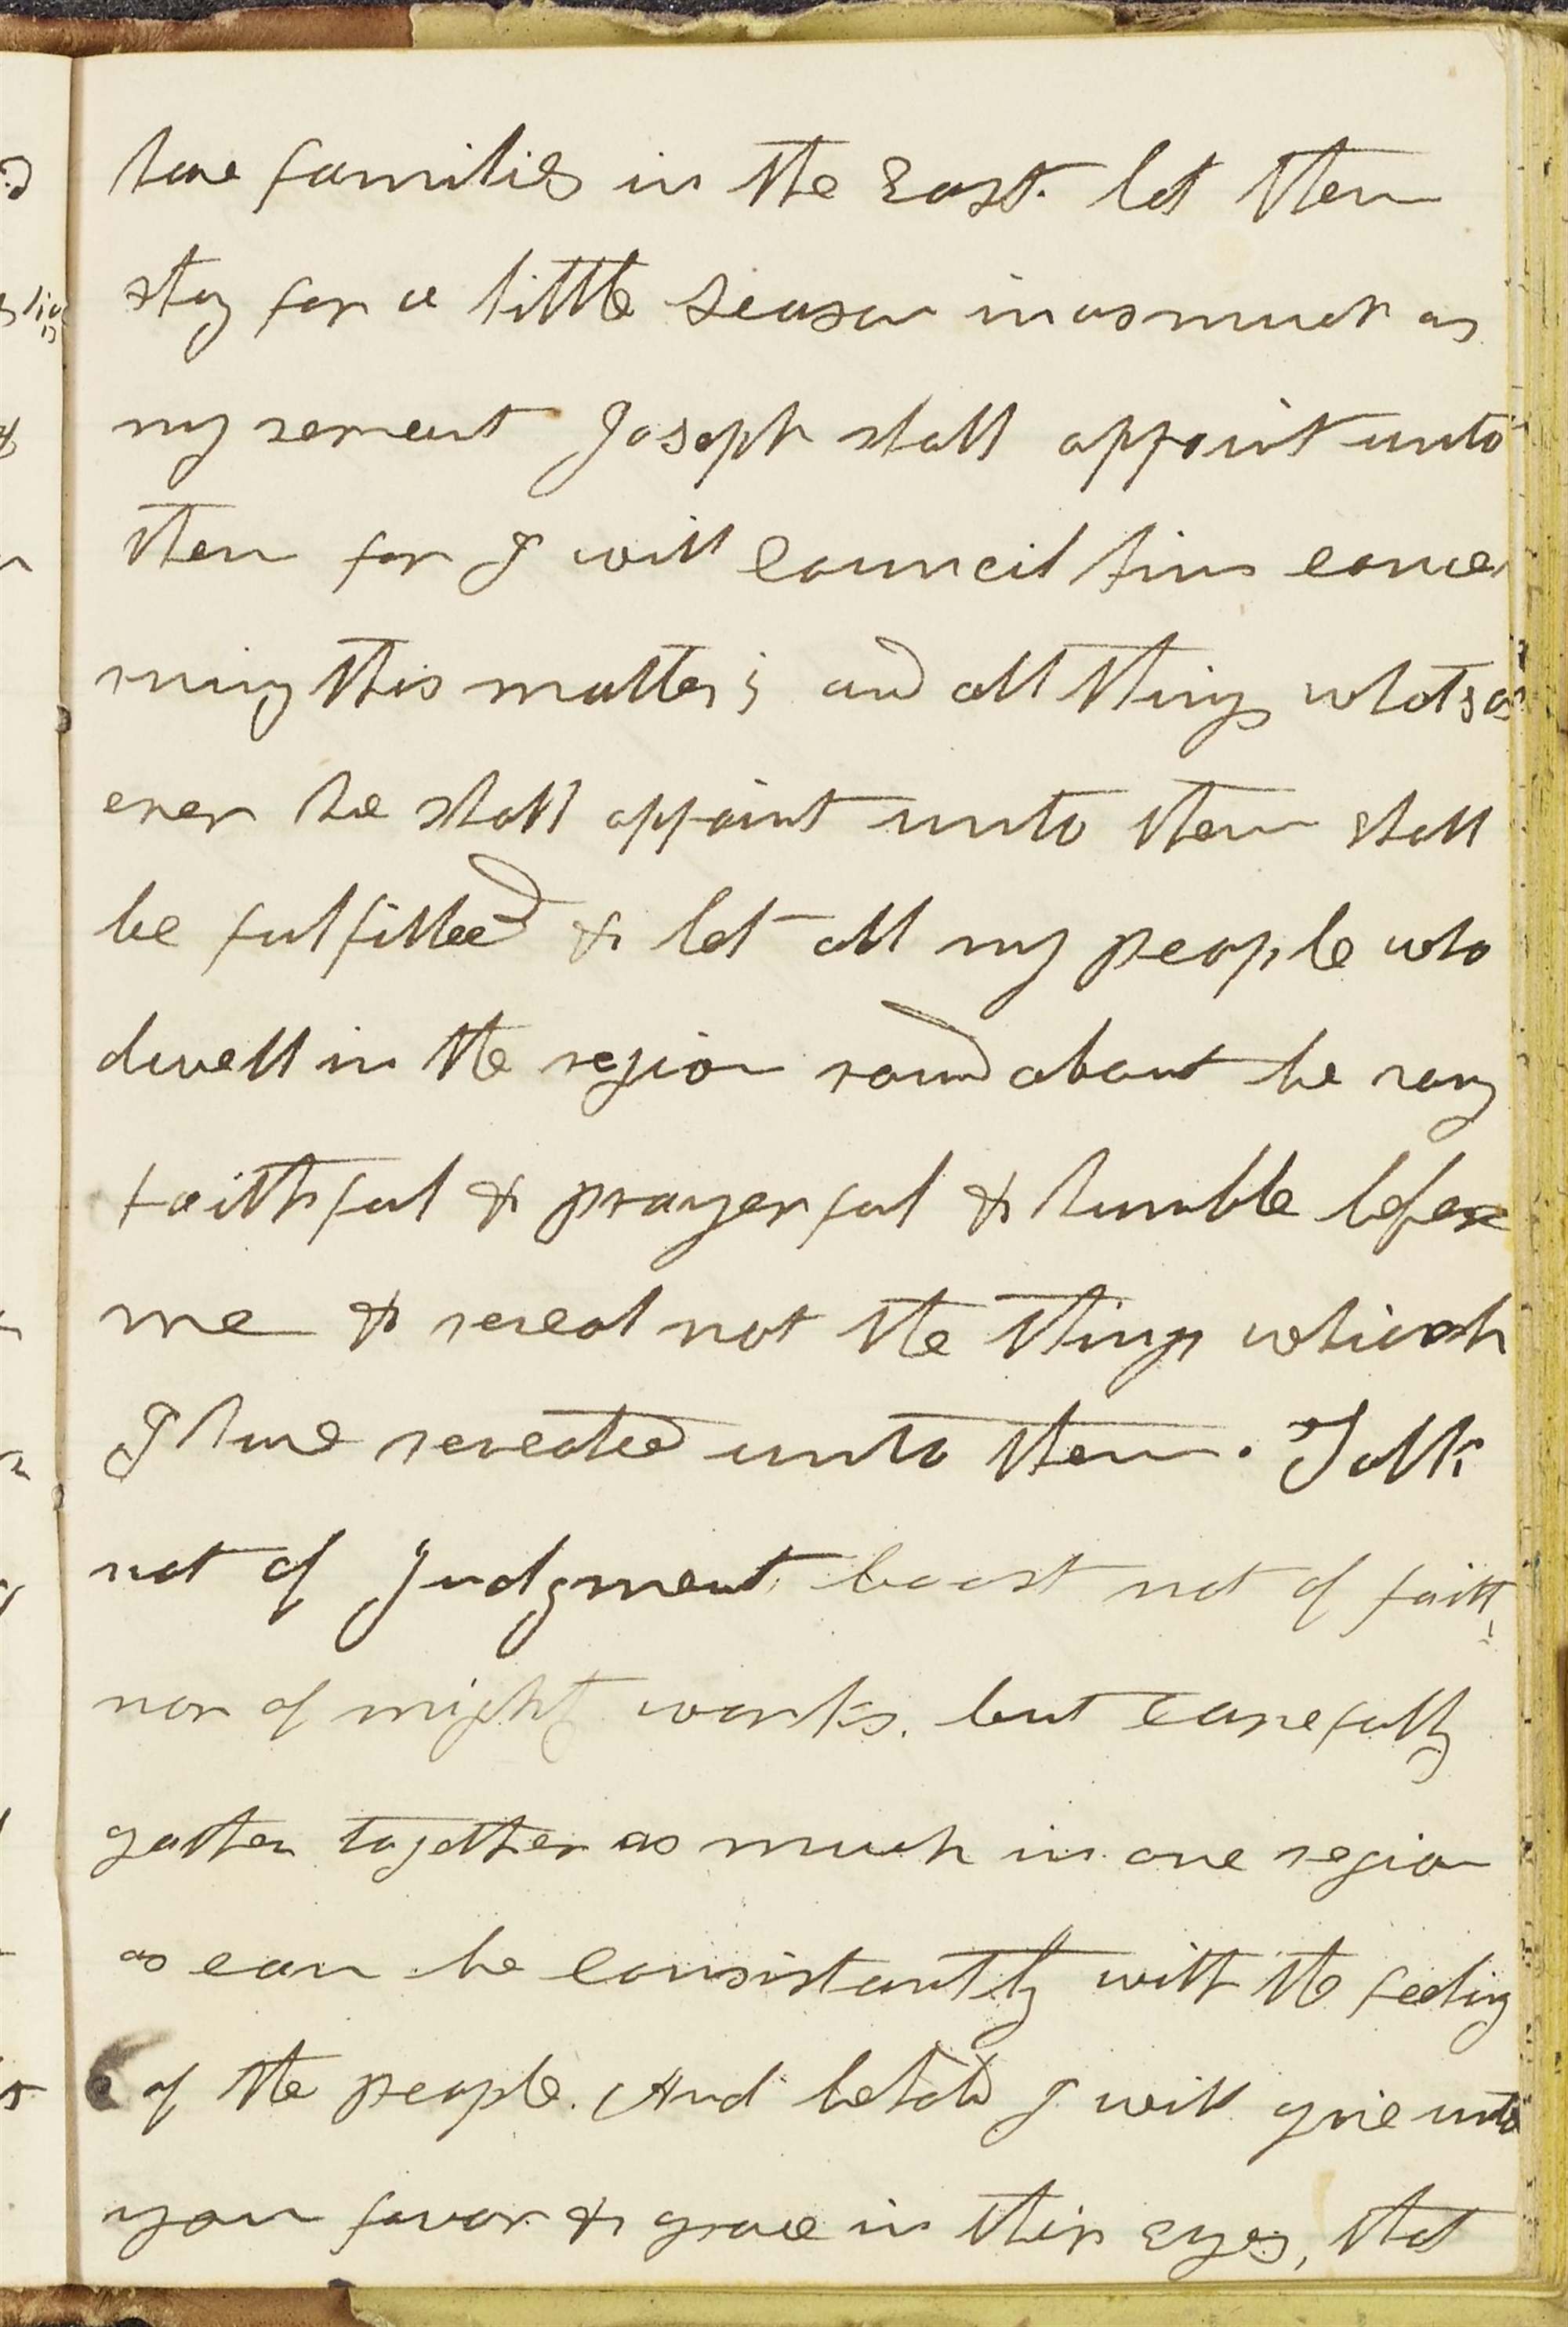 have families in the East. let them
stay for a little season inasmuch as
my servent Joseph shall appoint unto
them for I will council him conce
rning this matter; and all things whatso
ever he shall appoint unto them shall
be fulfilled & let all my people who
dwell in the region round about be vary
faithful & prayerful & humble before
me & reveal not the things which
I have revealed unto them. Talk
not of Judgment, boast not of faith,
nor of mighty works. but carefully
gather together as much in one region
as can be consistantly with the feeling
of the people. And behold I will give unto
you favor & grace in their eyes, that